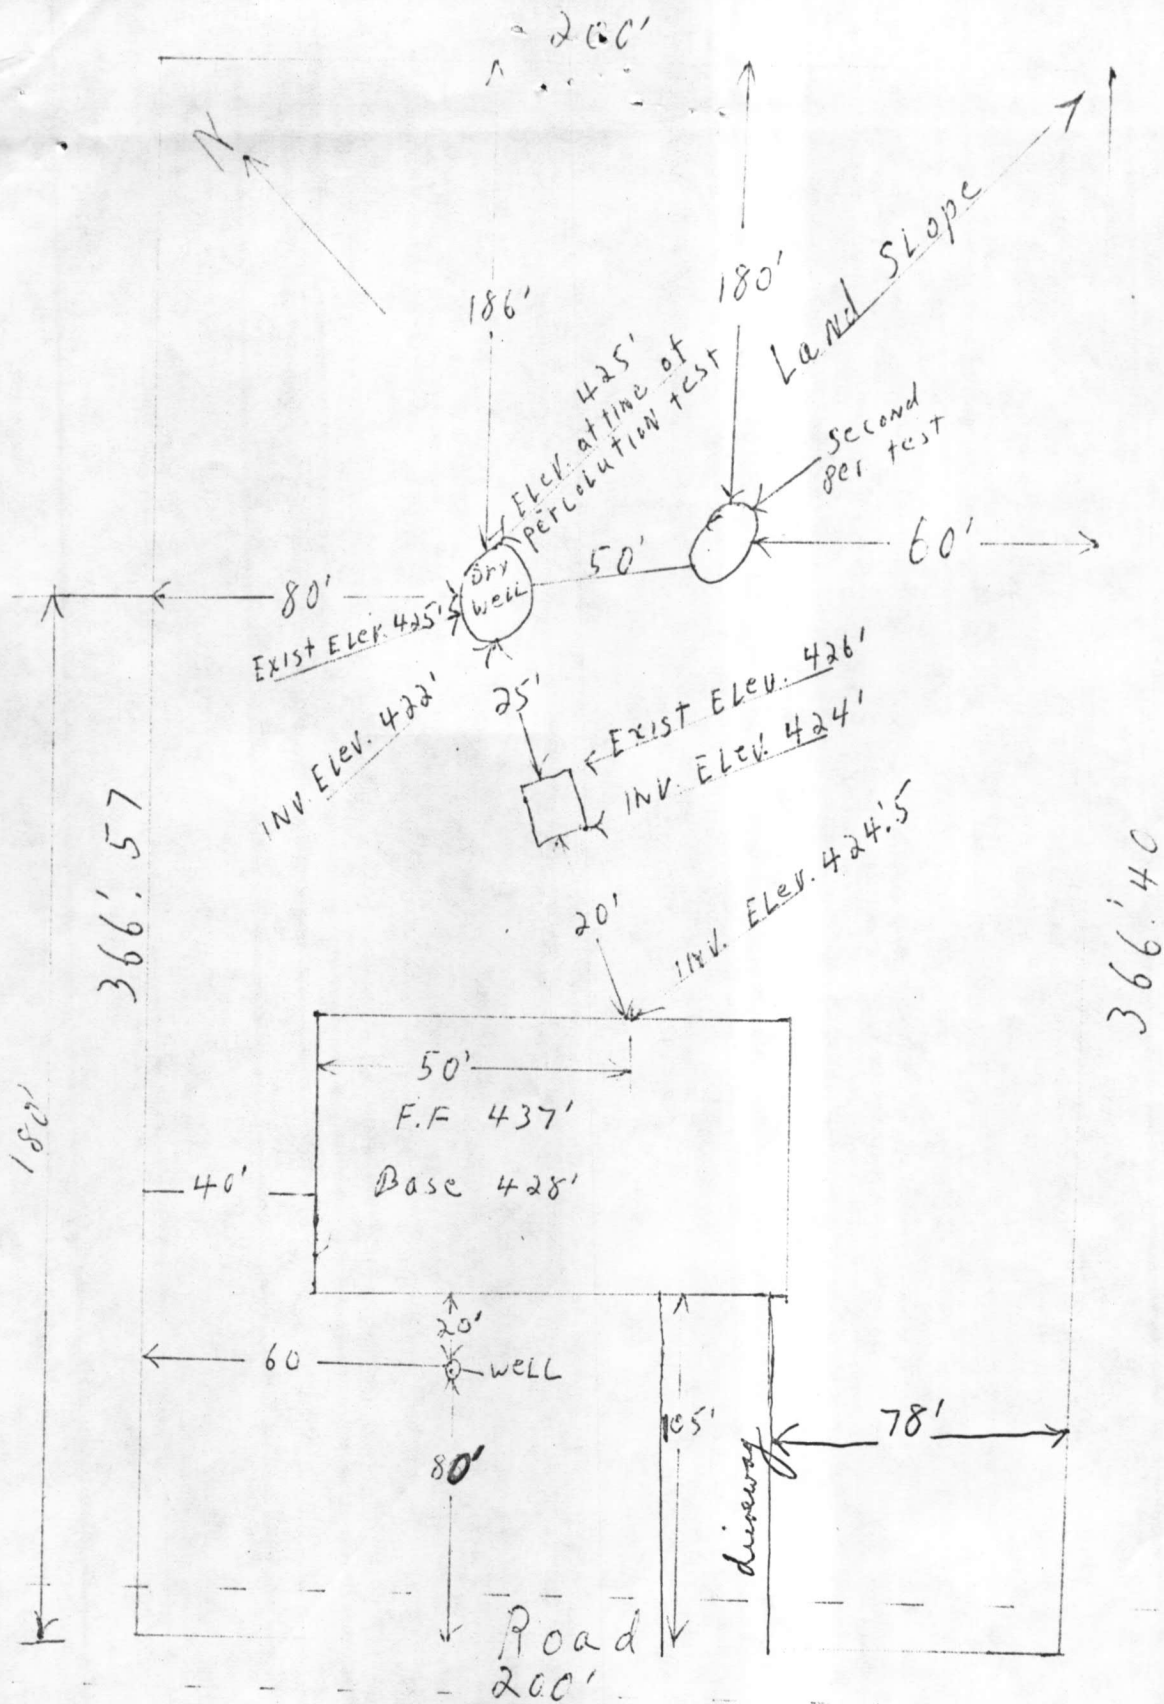 200'
N
186'
180'
Land Slope
425'
Elev. at time of
percolution test
Second
per test
Dry
well
50'
60'
80'
Exist Elev. 425'.5
INV. Elev. 422'
25'
Exist Elev. 426'
INV. Elev. 424'
INV. Elev. 424'.5
20'
366'.57
366'.40
180'
50'
F.F 437'
Base 428'
40'
20'
60
well
105'
78'
80'
driveway
Road
200'